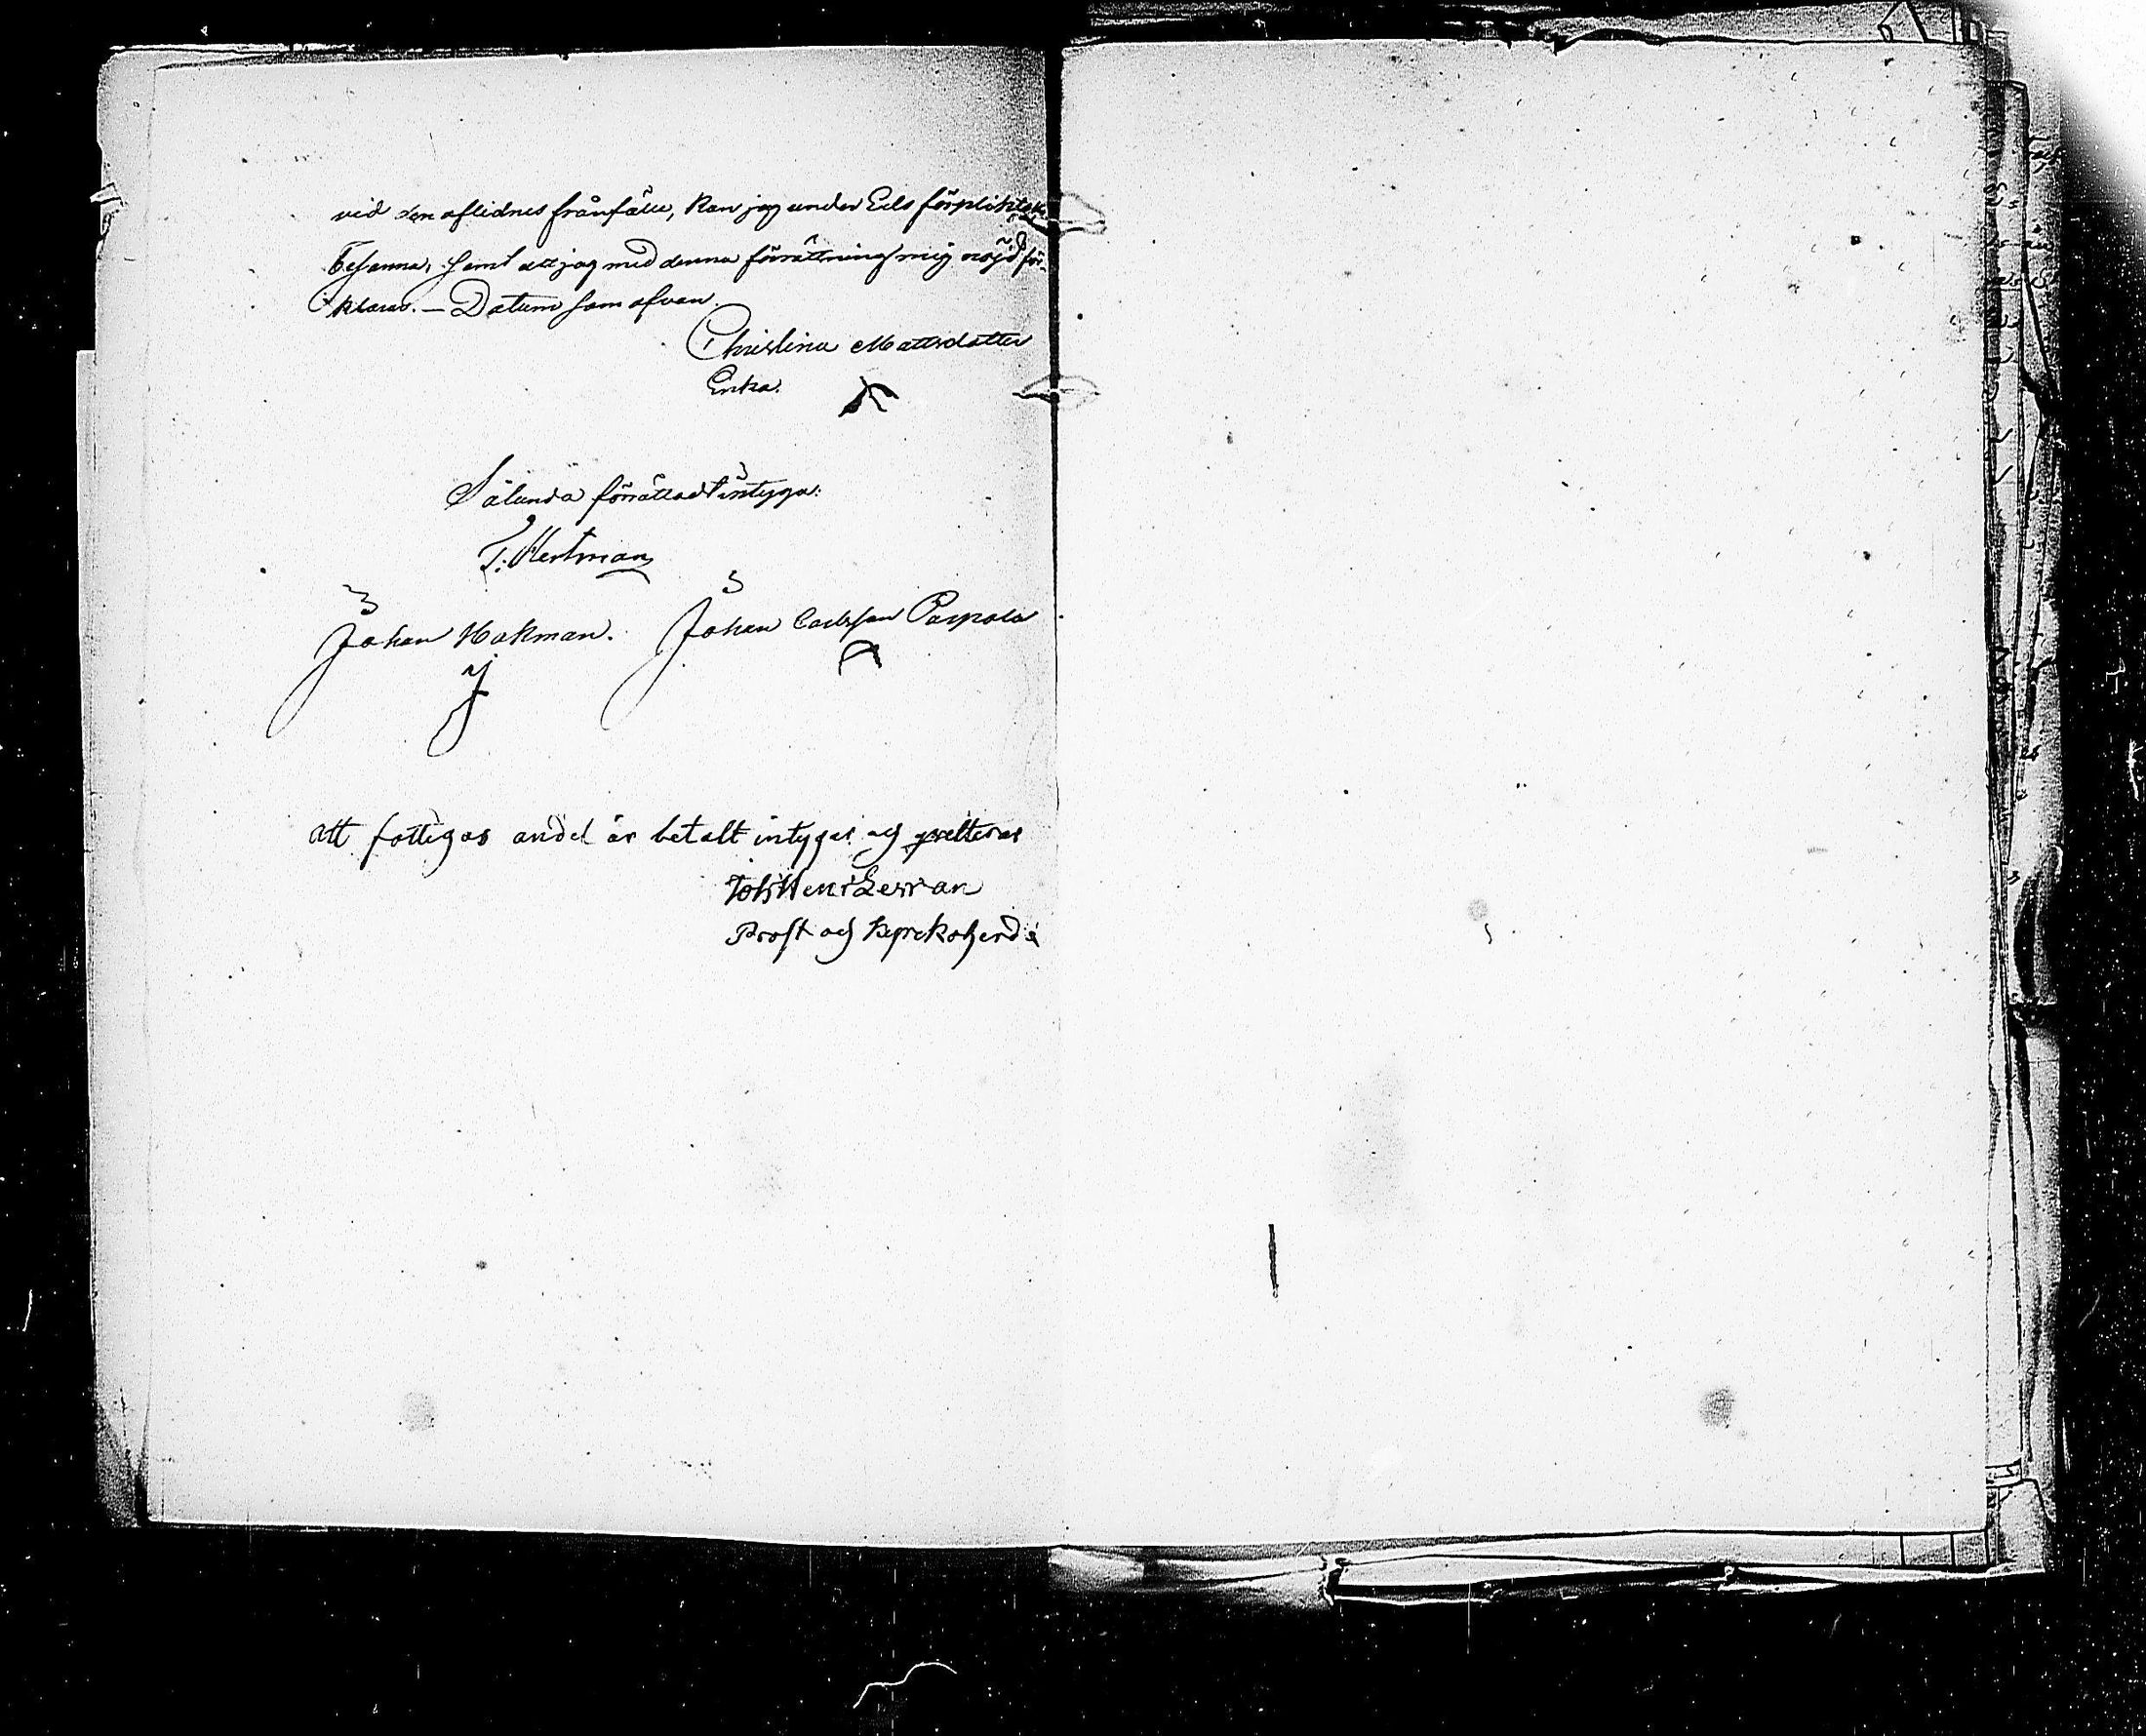 vid den aflidnes frånfälle, kan jag under Eds förpliktelse
besanna, samt att jag med denna förrättning mig nöjd för-
klarar. — Datum som ofvan.
Christina Mattsdotter
Enka.
Sålunda förrättadt intyga:
T. Westman
Johan Hakman. Johan Carlsson Parpola
Att fattigas andel är betalt intygas och qvitteras
Joh Henr
Prost och Kyrkoherde